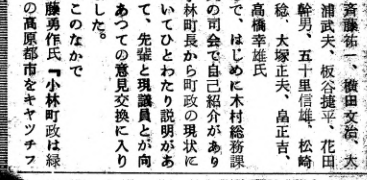 斉藤祐一、横田文治、大
浦武夫、板谷捷平、花田
幹男、五十里信雄、松崎
稔、大塚正夫、畠正吉、
高橋幸雄氏
で、はじめに木村総務課
の司会で自己紹介があり
林町長から町政の現状に
いてひとわたり説明があ
て、先輩と現議員とが向
あつての意見交換に入り
した。
このなかで
藤勇作氏『小林町政は緑
の高原都市をキヤツチフ